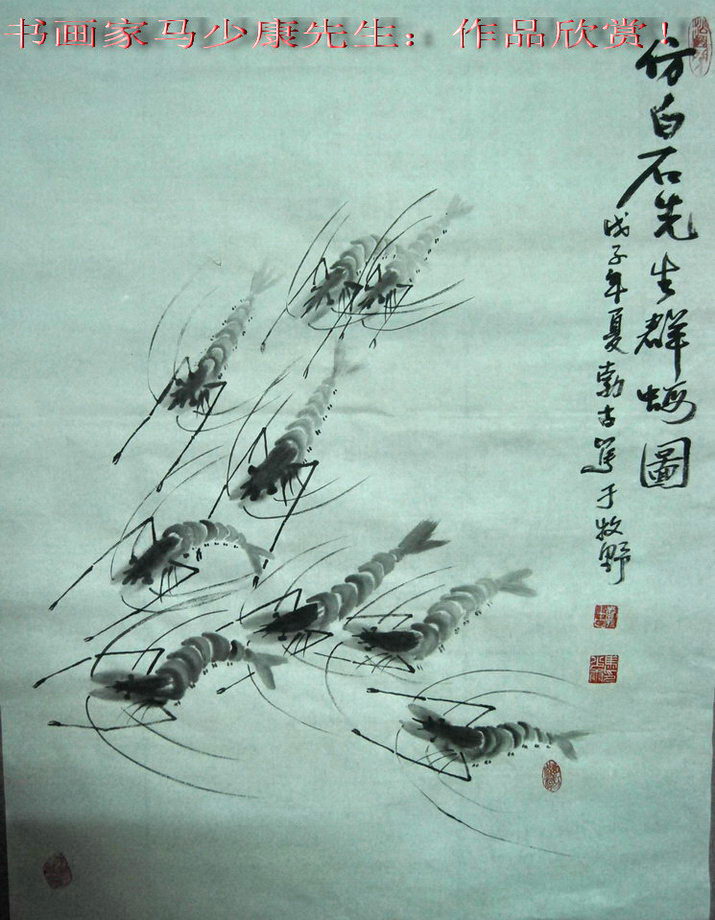 书画家马少康先生：作品欣赏！
仿白石先生群虾图
戊子年夏勃古笔于牧野